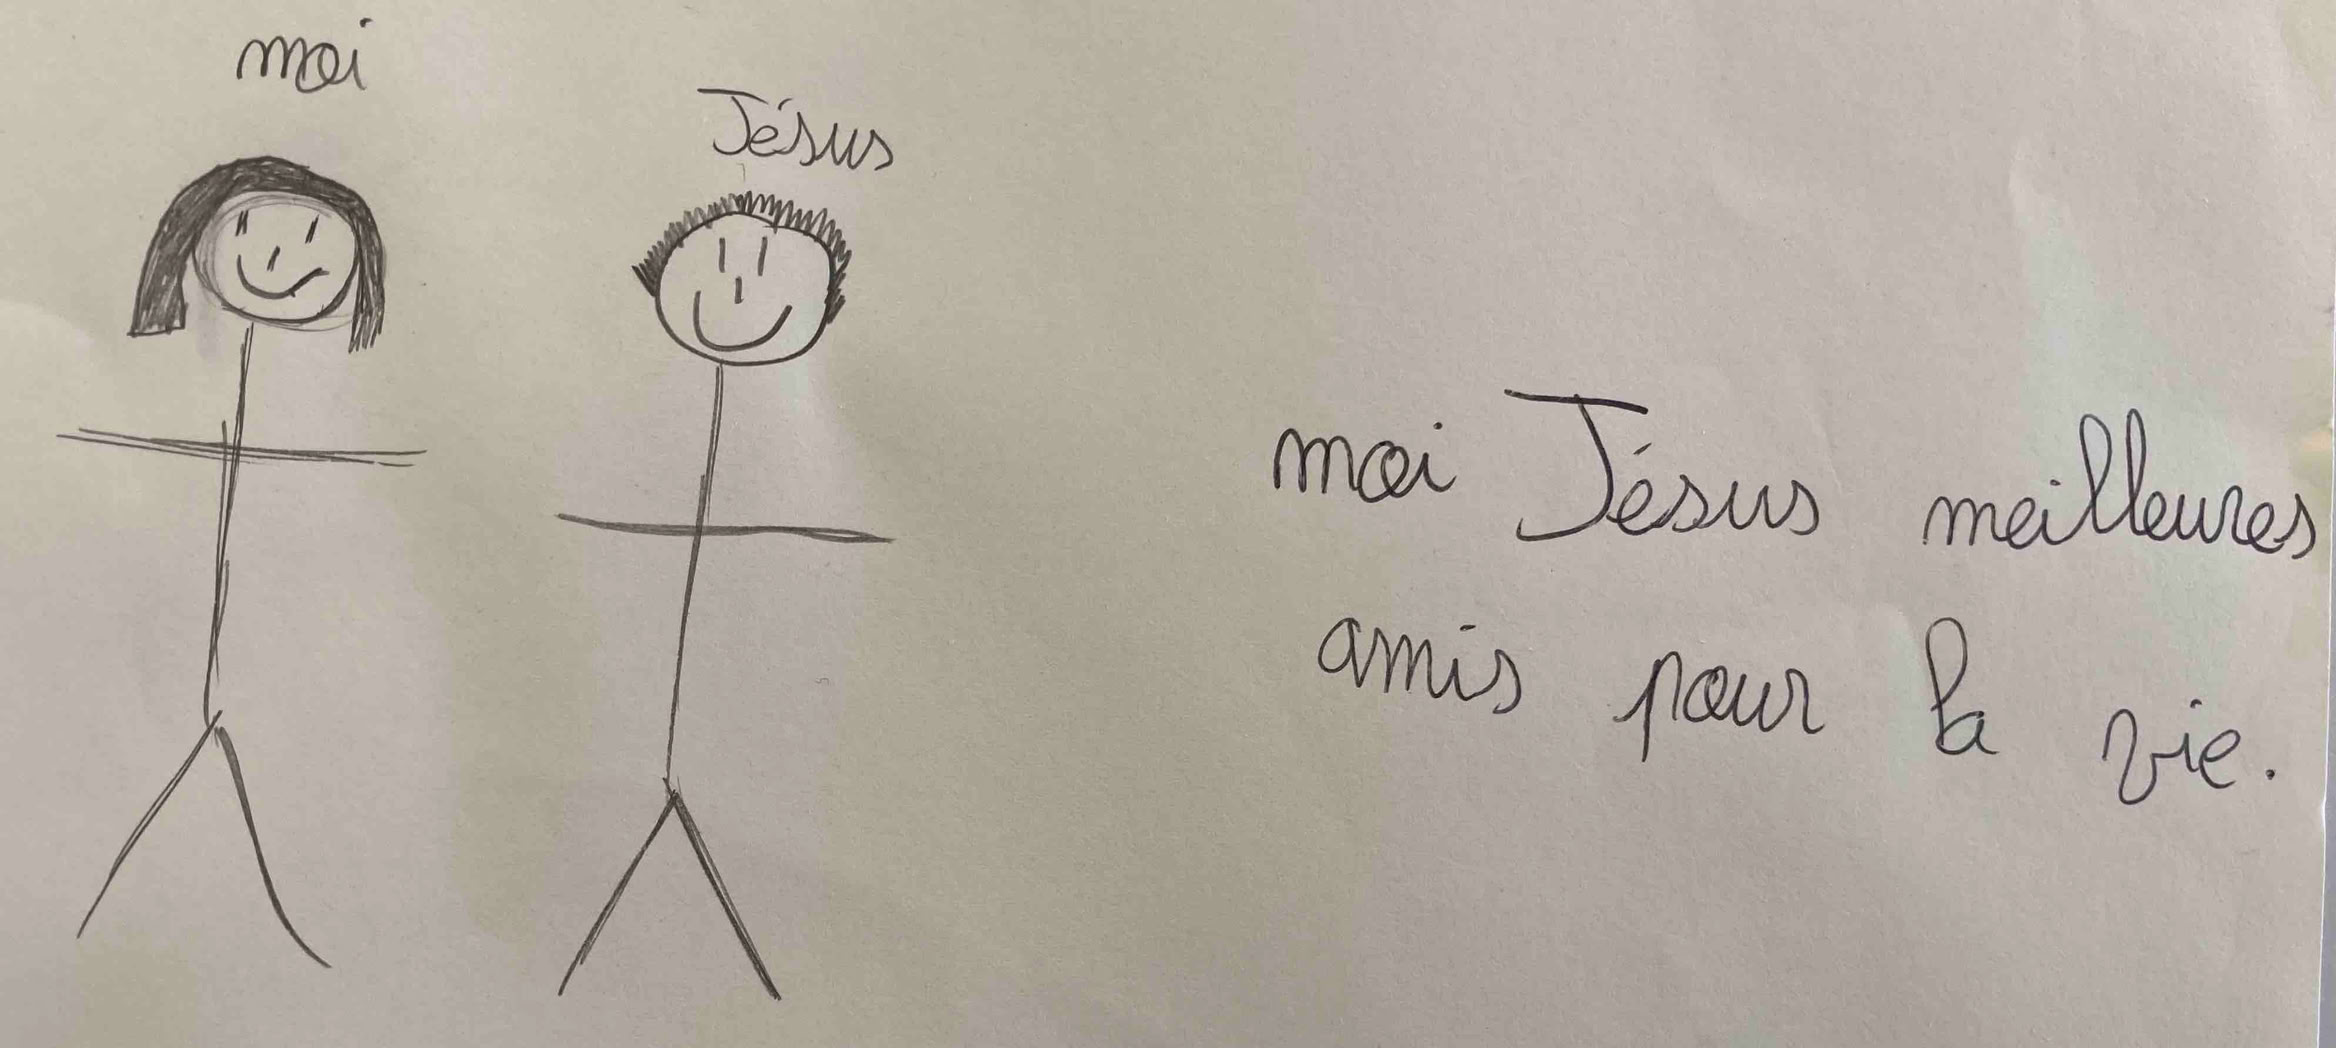 moi
Jésus
moi Jésus meilleures
amis pour la vie.